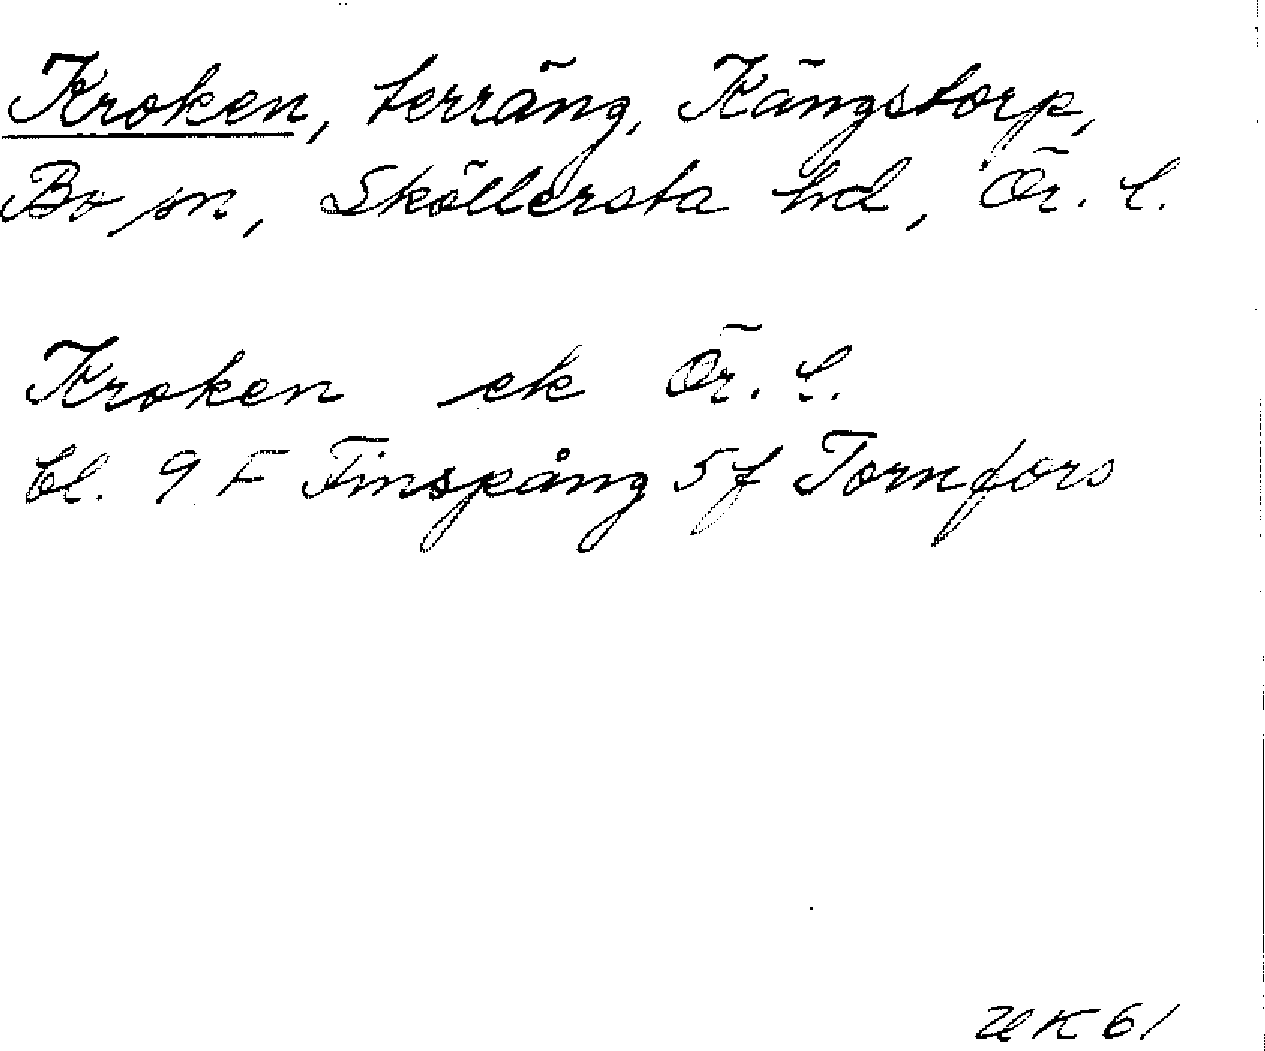 Kroken, terräng, Kängstorp,
Bo sn, Sköllersta hd, Ör. l.
Kroken ek Ör. l.
bl. 9 F Finspång 5f Tornfors
UK 61